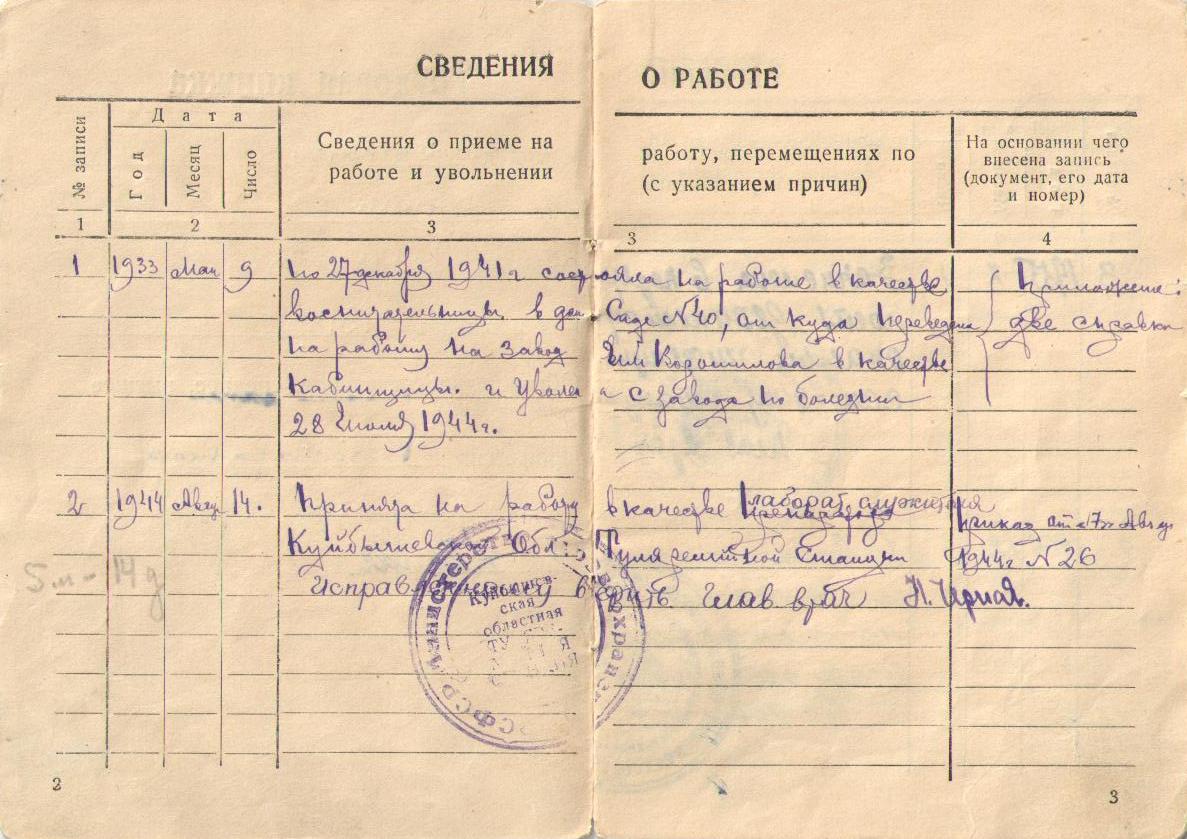 СВЕДЕНИЯ О РАБОТЕ
№ записи
Дата
Год
Месяц
Число
Сведения о приеме на работу, перемещениях по
работе и увольнении (с указанием причин)
На основании чего
внесена запись
(документ, его дата
и номер)
1 2 3 3 4
1 1933 Мая 9 По 27 декабря 1941 г состояла на работе в качестве Приложение:
воспитательницы в дет Саде №40, от куда переведена две справки
на работу на завод Им Ворошилова в качестве
Кабинщицы. и Уволена с завода по болезни
28 Июля 1944 г.
2 1944 Авгу 14. Принята на работу в качестве лаборат. служителя
Приказ от 17го Авгу
Куйбышевской Обл. Туляремийной Станции 1944 г N 26
5 м - 14 д
Исправленному верить. Глав врач
РСФСР Министерство здравоохранения
Куйбышев-
ская
областная
2
3